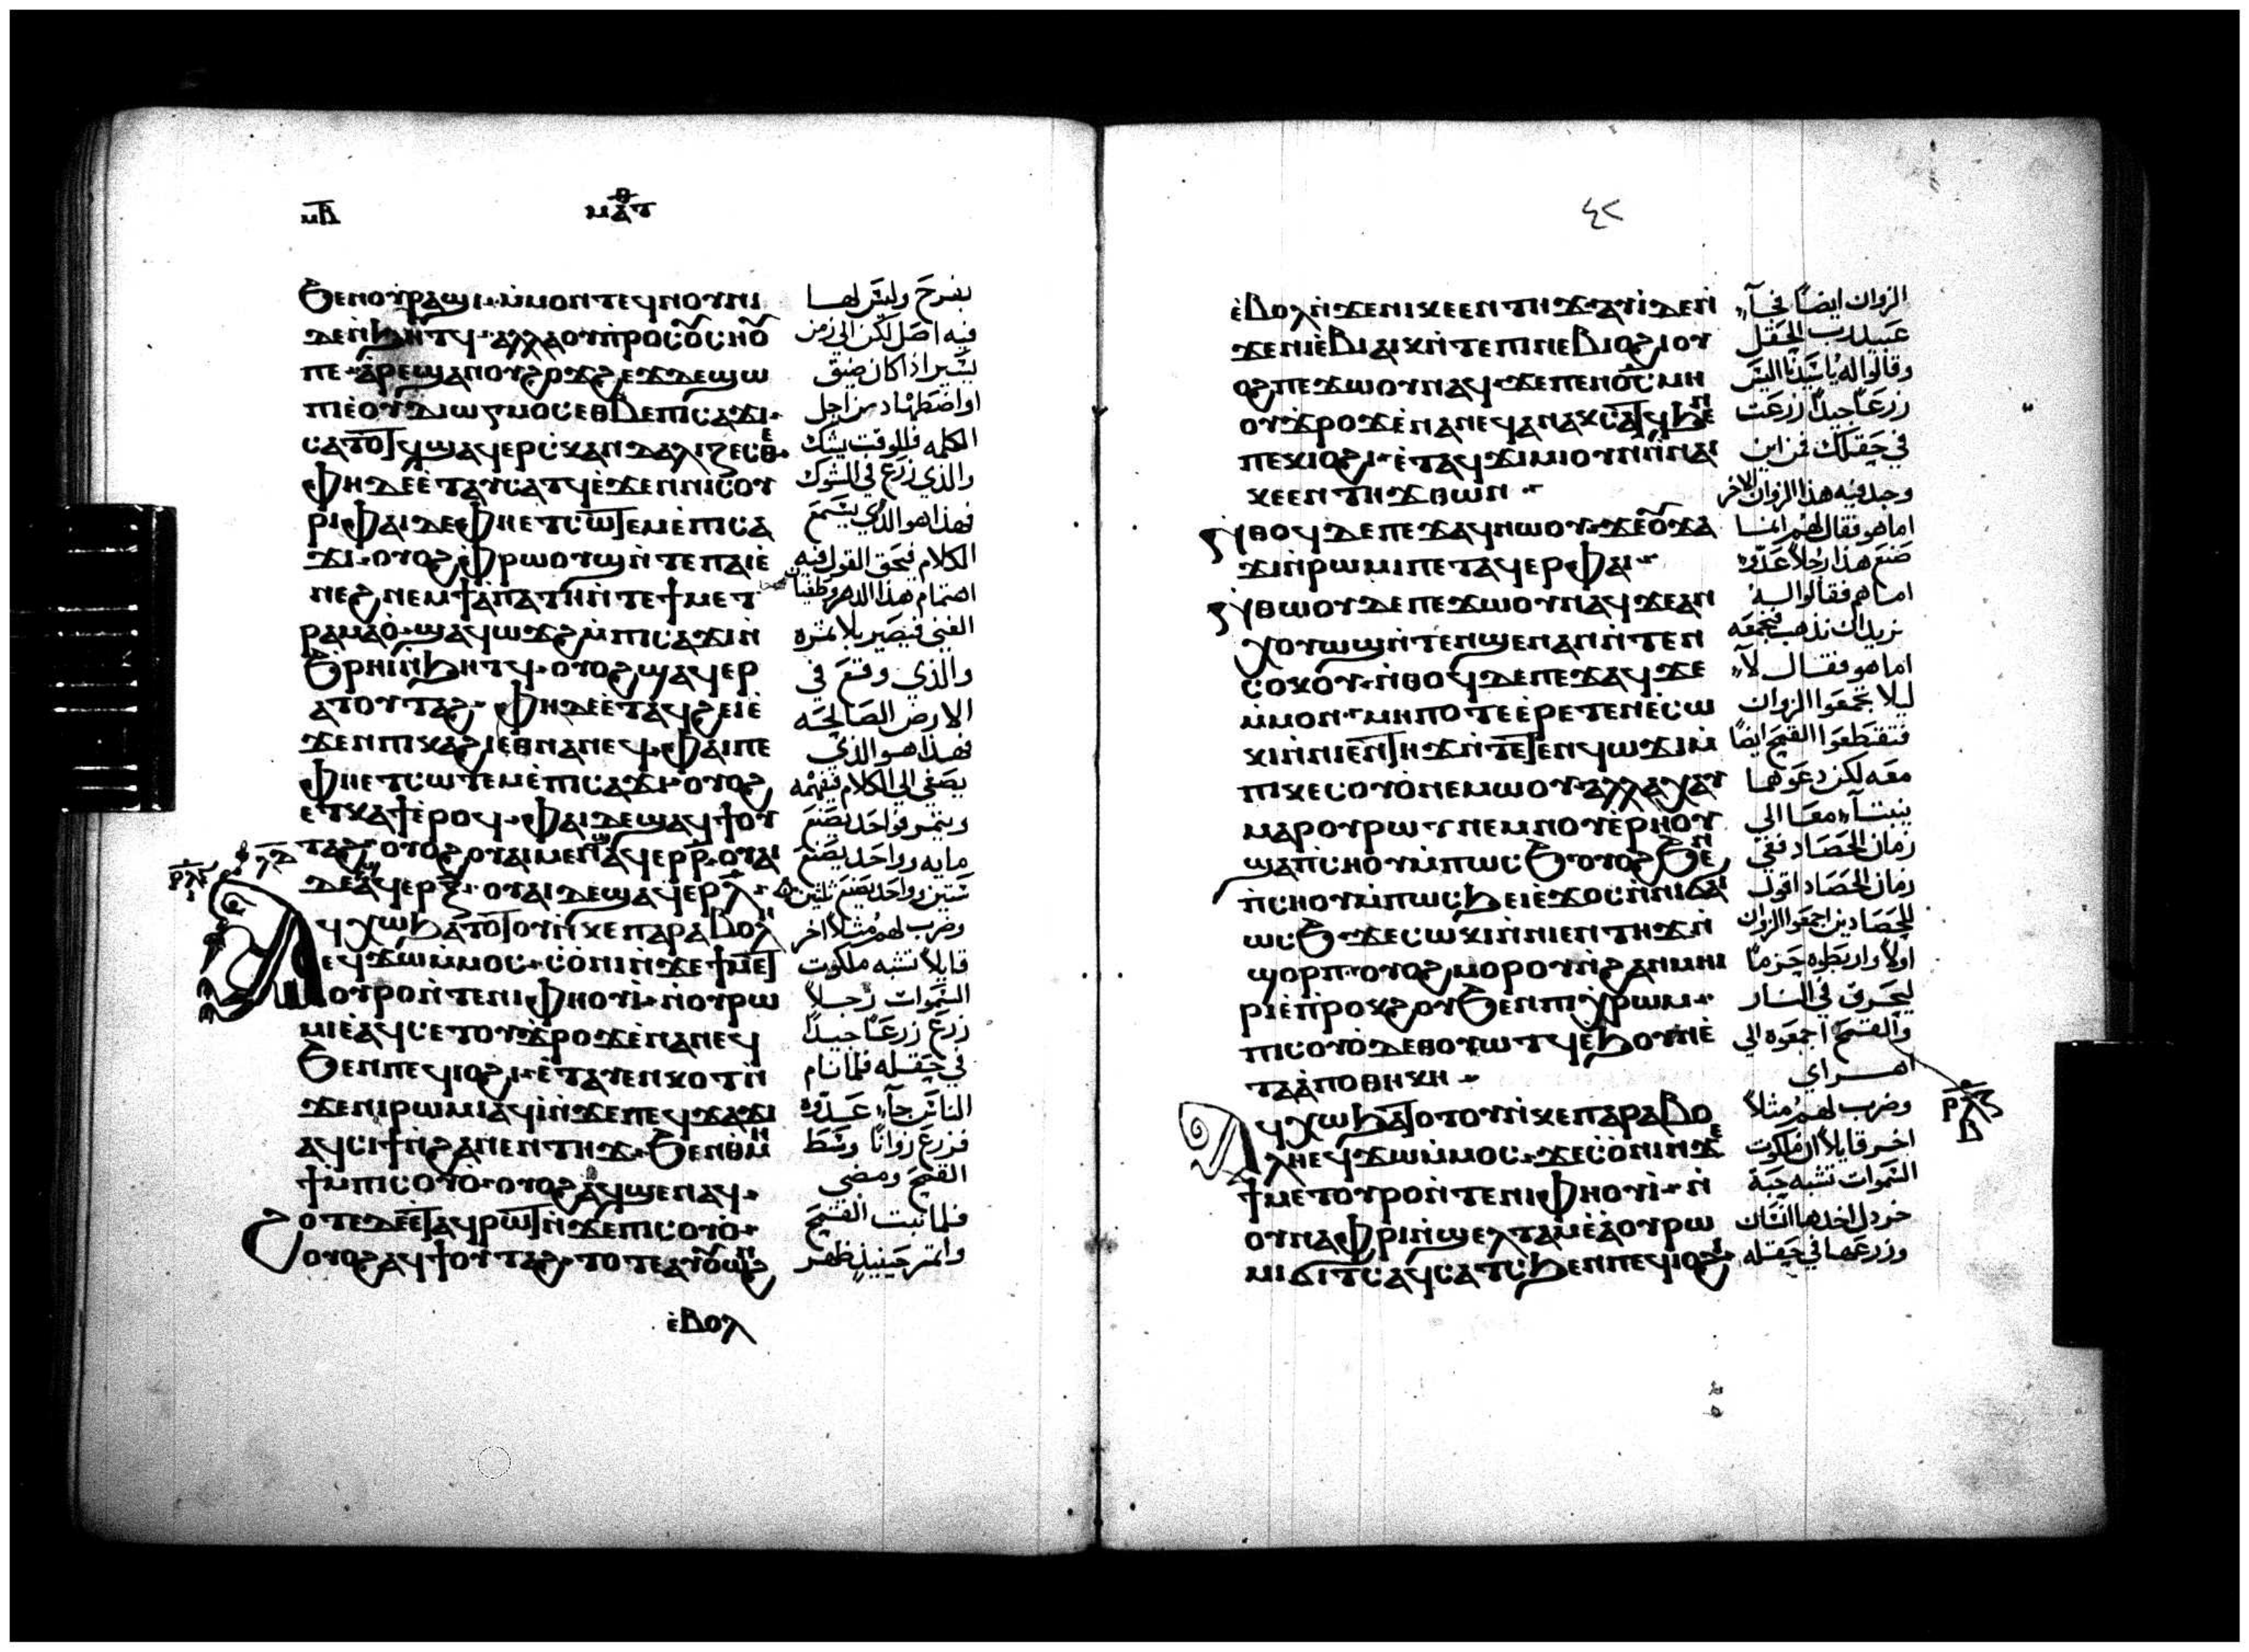 ⲙⲃ
ⲙⲁⲧⲑ
ϧⲉⲛⲟⲩⲣⲁϣⲓ·ⲙ̀ⲙⲟⲛⲧⲉϥⲛⲟⲩⲛⲓ
ⲇⲉⲛ̀ϧⲏⲧϥ·ⲁⲗⲗⲁⲟⲩⲡ̀ⲣⲟⲥⲟⲩⲥⲏⲟⲩ
ⲡⲉ·ⲁ̀ⲣⲉϣⲁⲛⲟⲩϩⲟϫϩⲉϫⲇⲉϣⲱ
ⲡⲓⲉ̀ⲟⲩⲇⲓⲱⲅⲙⲟⲥⲉⲑⲃⲉⲡⲓⲥⲁϫⲓ·
ⲥⲁⲧⲟⲧϥϣⲁϥⲉⲣⲥ̀ⲕⲁⲛⲇⲁⲗⲓⲍⲉⲥⲑⲉ·
ⲫⲏⲇⲉⲉ̀ⲧⲁⲩⲥⲁⲧϥⲉ̀ϫⲉⲛⲛⲓⲥⲟⲩ
ⲣⲓⲫⲁⲓⲇⲉⲫⲏⲉⲧⲥⲱⲧⲉⲙⲉ̀ⲡⲓⲥⲁ
ϫⲓ·ⲟⲩⲟϩⲫ̀ⲣⲱⲟⲩϣⲛ̀ⲧⲉⲡⲁⲓⲉ̀
ⲛⲉϩⲛⲉⲙϯⲁⲡⲁⲧⲏⲛ̀ⲧⲉϯⲙⲉⲧ
ⲣⲁⲙⲁⲟ̀·ϣⲁϥⲱϫϩⲙ̀ⲡⲓⲥⲁϫⲓⲛ̀
ϧⲣⲏⲓⲛ̀ϧⲏⲧϥ·ⲟⲩⲟϩϣⲁϥⲉⲣ
ⲁⲧⲟⲩⲧⲁϩ·ⲫⲏⲇⲉⲉ̀ⲧⲁϥϩⲉⲓⲉ̀
ϫⲉⲛⲡⲓⲕⲁϩⲓⲉⲑⲛⲁⲛⲉϥ·ⲫⲁⲓⲡⲉ
ⲫⲏⲉⲧⲥⲱⲧⲉⲙⲉ̀ⲡⲓⲥⲁϫⲓ·ⲟⲩⲟϩ
ⲉⲧⲕⲁϯⲉ̀ⲣⲟϥ·ⲫⲁⲓⲇⲉϣⲁϥϯⲟⲩ
ⲧⲁϩ·ⲟⲩⲟϩⲟⲩⲁⲓⲙⲉⲛϣⲁϥⲉⲣⲣ̅·ⲟⲩⲁⲓ
ⲇⲉϣⲁϥⲉⲣⲝ̅·ⲟⲩⲁⲓⲇⲉϣⲁϥⲉⲣⲗ̅·
ⲁϥⲭⲱϧⲁⲧⲟⲧⲟⲩⲛ̀ⲕⲉⲡⲁⲣⲁⲃⲟⲗⲏ
ⲉϥϫⲱⲙ̀ⲙⲟⲥ·ⲥ̀ⲟⲛⲓⲛ̀ϫⲉϯⲙⲉⲧ
ⲟⲩⲣⲟⲛ̀ⲧⲉⲛⲓⲫⲏⲟⲩⲓ̀·ⲛ̀ⲟⲩⲣⲱ
ⲙⲓⲉ̀ⲁϥⲥⲉⲧⲟⲩϫⲣⲟϫⲉ̀ⲛⲁⲛⲉϥ
ϧⲉⲛⲡⲉϥⲓⲟϩⲓ·ⲉ̀ⲧⲁⲩⲉⲛⲕⲟⲧⲛ̀
ϫⲉⲛⲓⲣⲱⲙⲓⲁϥⲓ̀ⲛ̀ϫⲉⲡⲉϥϫⲁϫⲓ
ⲁϥⲥⲓϯⲛ̀ϩⲁⲛⲉⲛⲧⲏϫ·ϧⲉⲛⲑⲙⲏ
ϯⲙ̀ⲡⲓⲥⲟⲩⲟ̀·ⲟⲩⲟϩⲁϥϣⲉⲛⲁϥ·
ϩⲟⲧⲉⲇⲉⲉ̀ⲧⲁϥⲣⲱⲧⲛ̀ϫⲉⲡⲓⲥⲟⲩⲟ̀·
ⲟⲩⲟϩⲁϥϯⲟⲩⲧⲁϩ·ⲧⲟⲧⲉⲁⲩⲟⲩⲱⲛϩ
ⲉ̀ⲃⲟⲗ
ⲗⲇ
ⲣⲗⲉ
ⲓ
بفرح وليس لها
فيه اصل لكن الى زمن
يسير اذا كان ضيق
او اضطهاد من اجل
الكلمه فللوقت يشك
والذي زرع في الشوك
فهذا هو الذي يسمع
الكلام فيخنق القول فيه
اهتمام هذا الدهر وطغيان
الغنى فيصير بلا ثمره
والذي وقع في
الارض الصالحه
فهذا هو الذي
يصغي الى الكلام فيفهمه
ويثمر فواحد يصنع
مايه وواحد يصنع
ستين وواحد يصنع ثلثين
وضرب لهم مثلا اخر
قايلا تشبه ملكوت
السموات رجلا
زرع زرعا جيدا
في حقله فلما نام
الناس جآء عدوه
فزرع زوانا وسط
القمح ومضى
فلما نبت القمح
واثمر حينيذ ظهر
٤٢
ⲉ̀ⲃⲟⲗⲛ̀ϫⲉⲛⲓⲕⲉⲉⲛⲧⲏϫ·ⲁⲩⲓ̀ⲇⲉⲛ̀
ϫⲉⲛⲓⲉ̀ⲃⲓⲁⲓⲕⲛ̀ⲧⲉⲡⲓⲛⲉⲃⲓⲟϩⲓⲟⲩ
ⲟϩⲡⲉϫⲱⲟⲩⲛⲁϥ·ϫⲉⲡⲉⲛⲟ̅ⲥ̅ⲙⲏ
ⲟⲩϫⲣⲟϫⲉ̀ⲛⲁⲛⲉϥⲁⲛⲁⲕⲥⲁⲧϥϧⲉⲛ
ⲡⲉⲕⲓⲟϩⲓ·ⲉ̀ⲧⲁϥϫⲓⲙⲓⲟⲩⲛⲛ̀ⲛⲁⲓ
ⲕⲉⲉⲛⲧⲏϫⲑⲱⲛ·
ⲛ̀ⲑⲟϥⲇⲉⲡⲉϫⲁϥⲛⲱⲟⲩ·ϫⲉⲟⲩϫⲁ
ϫⲓⲛ̀ⲣⲱⲙⲓⲡⲉⲧⲁϥⲉⲣⲫⲁⲓ·
ⲛ̀ⲑⲱⲟⲩⲇⲉⲡⲉϫⲱⲟⲩⲛⲁϥϫⲉⲁⲛ
ⲭⲟⲩⲱϣⲛ̀ⲧⲉⲛϣⲉⲛⲁⲛⲛ̀ⲧⲉⲛ
ⲥⲟⲕⲟⲩ·ⲛ̀ⲑⲟϥⲇⲉⲡⲉϫⲁϥϫⲉ
ⲙ̀ⲙⲟⲛ·ⲙⲏⲡⲟⲧⲉⲉ̀ⲣⲉⲧⲉⲛⲉ̀ⲥⲱ
ⲕⲓⲛ̀ⲛⲓⲉⲛⲧⲏϫⲛ̀ⲧⲉⲧⲉⲛϥⲱϫⲓⲙ̀
ⲡⲓⲕⲉⲥⲟⲩⲟ̀ⲛⲉⲙⲱⲟⲩ·ⲁⲗⲗⲁⲭⲁⲩ
ⲙⲁⲣⲟⲩⲣⲱⲧⲛⲉⲙⲛⲟⲩⲉ̀ⲣⲏⲟⲩ
ϣⲁⲡ̀ⲥⲏⲟⲩⲙ̀ⲡⲱⲥϧ·ⲟⲩⲟϩϧⲉⲛ
ⲡ̀ⲥⲏⲟⲩⲙ̀ⲡⲱⲥϧⲉⲓⲉ̀ϫⲟⲥⲛ̀ⲛⲓϭⲁⲓ
ⲱⲥϧ·ϫⲉⲥⲱⲕⲓⲛ̀ⲛⲓⲉⲛⲧⲏϫⲛ̀
ϣⲟⲣⲡ·ⲟⲩⲟϩⲙⲟⲣⲟⲩⲛ̀ϩⲁⲛⲙⲏⲓ
ⲣⲓⲉ̀ⲡ̀ⲣⲟⲕϩⲟⲩϧⲉⲛⲡⲓⲭ̀ⲣⲱⲙ·
ⲡⲓⲥⲟⲩⲟ̀ⲇⲉⲑⲟⲩⲱⲧϥⲉ̀ϧⲟⲩⲛⲉ̀
ⲧⲁⲁ̀ⲡⲟⲑⲏⲕⲏ·
ⲁϥⲭⲱϧⲁⲧⲟⲧⲟⲩⲛ̀ⲕⲉⲡⲁⲣⲁⲃⲟ
ⲗⲏⲉϥϫⲱⲙ̀ⲙⲟⲥ·ϫⲉⲥ̀ⲟⲛⲓⲛ̀ϫⲉ
ϯⲙⲉⲧⲟⲩⲣⲟⲛ̀ⲧⲉⲛⲓⲫⲏⲟⲩⲓ̀·ⲛ̀
ⲟⲩⲛⲁⲫⲣⲓⲛ̀ϣⲉⲗⲧⲁⲙⲉ̀ⲁ̀ⲟⲩⲣⲱ
ⲙⲓϭⲓⲧⲥⲁϥⲥⲁⲧⲥϧⲉⲛⲡⲉϥⲓⲟϩⲓ
الزوان ايضا فجآء
عبيد رب الحقل
وقالوا له يا سيدنا اليس
زرعا جيدا زرعت
في حقلك فمن اين
وجد فيه هذا الزوان الاخر
اما هو فقال لهم انسا
صنع هذا رجلا عدوه
اما هم فقالوا له
نريد ان نذهب فنجمعه
اما هو فقال لآء
ليلا تجمعوا الزوان
فتقطعوا القمح ايضا
معه لكن دعوهما
ينبتآء معا الى
زمان الحصاد ففي
زمان الحصاد اقول
للحصادين اجمعوا الزوان
اولا واربطوه حزما
ليحرق في النار
والقمح اجمعوه الى
اهراي
وضرب لهم مثلا
اخر قايلا ان ملكوت
السموات تشبه حبة
خردل اخذها انسان
وزرعها في حقله
ⲣⲗⲋ
ⲃ